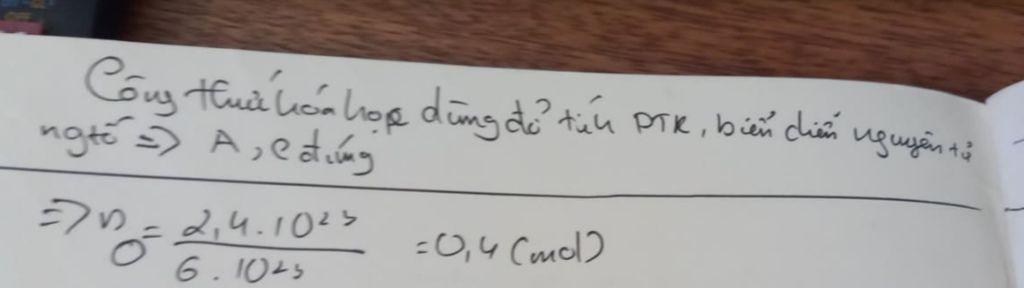 Công thức hóa học dùng để tính PTK, biểu diễn nguyên tử
ngtố => A, C đúng
=> nO = 2,4.10²³ / 6.10²³ = 0,4 (mol)